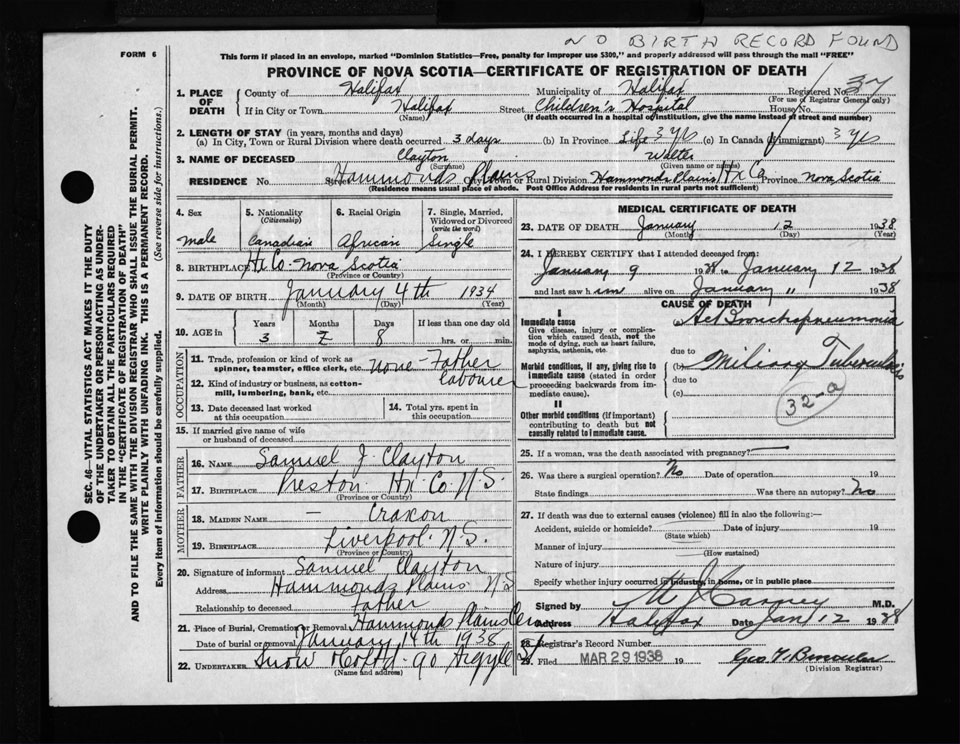 NO BIRTH RECORD FOUND
FORM 6
This form if placed in an envelope, marked "Dominion Statistics—Free, penalty for improper use $300," and properly addressed will pass through the mail "FREE"
PROVINCE OF NOVA SCOTIA—CERTIFICATE OF REGISTRATION OF DEATH
SEC. 46—VITAL STATISTICS ACT MAKES IT THE DUTY
OF THE UNDERTAKER OR PERSON ACTING AS UNDER-
TAKER TO OBTAIN ALL THE PARTICULARS REQUIRED
IN THE "CERTIFICATE OF REGISTRATION OF DEATH"
AND TO FILE THE SAME WITH THE DIVISION REGISTRAR WHO SHALL ISSUE THE BURIAL PERMIT.
WRITE PLAINLY WITH UNFADING INK. THIS IS A PERMANENT RECORD.
Every item of information should be carefully supplied. (See reverse side for instructions.)
1. PLACE OF DEATH
County of Halifax Municipality of Halifax Registered No. 37
(For use of Registrar General only)
If in City or Town Halifax Street Children's Hospital House No.
(Name) (If death occurred in a hospital of institution, give the name instead of street and number)
2. LENGTH OF STAY (in years, months and days)
(a) In City, Town or Rural Division where death occurred 3 days (b) In Province Life 3 yrs (c) In Canada (if immigrant) 3 yrs
3. NAME OF DECEASED Clayton Walter
(Surname) (Given name or names)
RESIDENCE No. Street Hammonds Plains City, Town or Rural Division Hammonds Plains Hx Co Province Nova Scotia
(Residence means usual place of abode. Post Office Address for residents in rural parts not sufficient)
4. Sex
male
5. Nationality
(Citizenship)
Canadian
6. Racial Origin
African
7. Single, Married, Widowed or Divorced
(write the word)
Single
8. BIRTHPLACE Hx Co. Nova Scotia
(Province or Country)
9. DATE OF BIRTH January 4th 1934
(Month) (Day) (Year)
10. AGE in
Years Months Days If less than one day old
3 8 hrs. or min.
OCCUPATION
11. Trade, profession or kind of work as
spinner, teamster, office clerk, etc. none - Father
12. Kind of industry or business, as cotton- labourer
mill, lumbering, bank, etc.
13. Date deceased last worked
at this occupation
14. Total yrs. spent in
this occupation
15. If married give name of wife
or husband of deceased
FATHER
16. NAME Samuel J. Clayton
17. BIRTHPLACE Preston Hx. Co. N.S.
(Province or Country)
MOTHER
18. MAIDEN NAME — Craxon
19. BIRTHPLACE Liverpool. N.S.
(Province or Country)
20. Signature of informant Samuel Clayton
Address Hammonds Plains N.S
Relationship to deceased Father
21. Place of Burial, Cremation or Removal Hammonds Plains Cem
Date of burial or removal January 14th 1938
22. UNDERTAKER Snow & Co Ltd - 90 Argyle St
(Name and address)
MEDICAL CERTIFICATE OF DEATH
23. DATE OF DEATH January 12 1938
(Month) (Day) (Year)
24. I HEREBY CERTIFY that I attended deceased from:
January 9 1938 to January 12 1938
and last saw him alive on January 11 1938
CAUSE OF DEATH
I
Immediate cause
Give disease, injury or complica-
tion which caused death, not the
mode of dying, such as heart failure,
asphyxia, asthenia, etc.
(a) Act Bronchopneumonia
due to
Morbid conditions, if any, giving rise to
immediate cause (stated in order
proceeding backwards from im-
mediate cause).
(b) Miliary Tuberculosis
due to
(c)
32-a
II
Other morbid conditions (if important)
contributing to death but not
causally related to immediate cause.
25. If a woman, was the death associated with pregnancy? —
26. Was there a surgical operation? No Date of operation 19
State findings Was there an autopsy? No
27. If death was due to external causes (violence) fill in also the following:—
Accident, suicide or homicide? Date of injury 19
(State which)
Manner of injury
(How sustained)
Nature of injury
Specify whether injury occurred in industry, in home, or in public place
Signed by J Carney M.D.
Address Halifax Date Jan 12 1938
28. Registrar's Record Number
29. Filed MAR 29 1938 19
(Division Registrar)